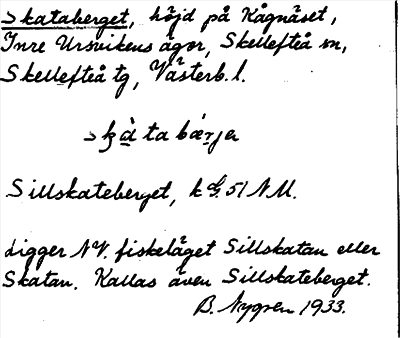 Skataberget, höjd på Kågnäset,
Inre Ursvikens ägor, Skellefteå sn,
Skellefteå tg, Västerb. l.
skà ta bǽrjer
Sillskateberget, k bl. 51 NV.
Ligger NV. fiskeläget Sillskatan eller
Skatan. Kallas även Sillskateberget.
B. Nygren 1933.